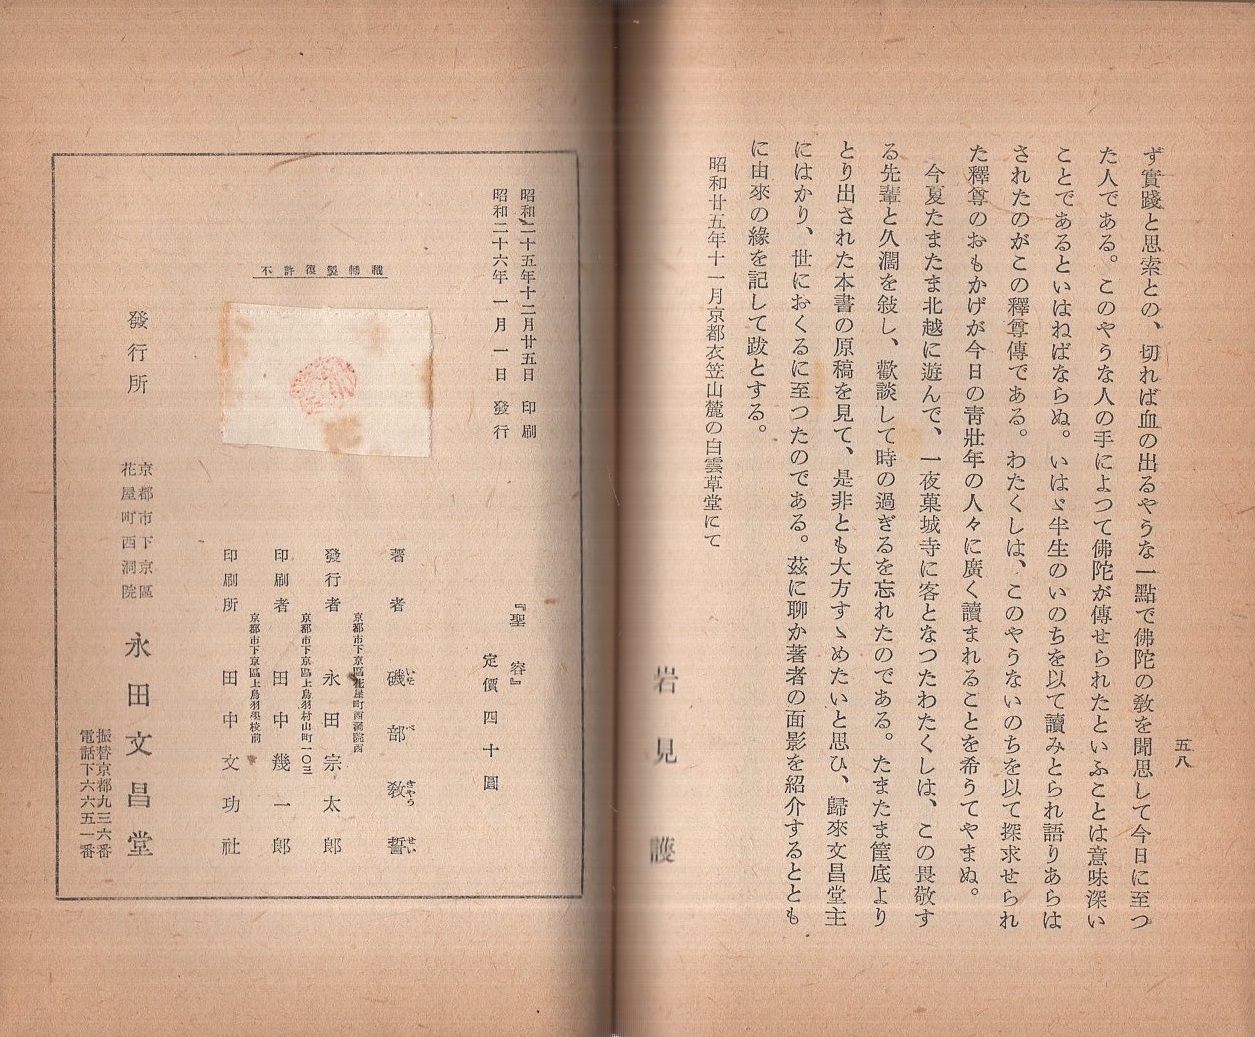 五八
ず實踐と思索との、切れば血の出るやうな一點で佛陀の敎を聞思して今日に至つ
た人である。このやうな人の手によつて佛陀が傳せられたといふことは意味深い
ことであるといはねばならぬ。いはゞ半生のいのちを以て讀みとられ語りあらは
されたのがこの釋尊傳である。わたくしは、このやうないのちを以て探求せられ
た釋尊のおもかげが今日の靑壯年の人々に廣く讀まれることを希うてやまぬ。
今夏たまたま北越に遊んで、一夜菓城寺に客となつたわたくしは、この畏敬す
る先輩と久濶を敍し、歡談して時の過ぎるを忘れたのである。たまたま筐底より
とり出された本書の原稿を見て、是非とも大方すゝめたいと思ひ、歸來文昌堂主
にはかり、世におくるに至つたのである。茲に聊か著者の面影を紹介するととも
に由來の緣を記して跋とする。
昭和廿五年十一月京都衣笠山麓の白雲草堂にて
岩見護
昭和二十五年十二月廿五日 印刷
昭和二十六年一月一日 發行
『聖容』
定價四十圓
不許復製轉載
著者 磯部敎誓
いそべきやうせい
京都市下京區花屋町西洞院西
發行者 永田宗太郎
京都市下京區上鳥羽村山町一〇三
印刷者 田中幾一郎
京都市下京區上鳥羽學校前
印刷所 田中文功社
發行所
京都市下京區
花屋町西洞院
永田文昌堂
振替京都九三六番
電話下六六五一番